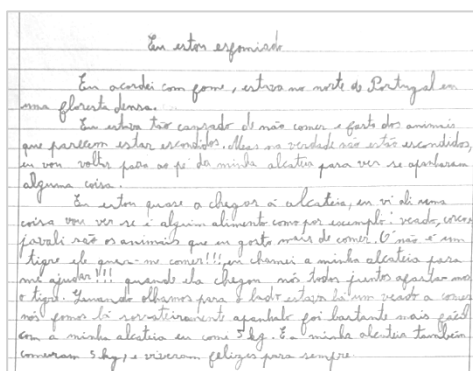 Eu estou esfomiado
Eu acordei com fome, estava no norte de Portugal em
uma floresta densa.
Eu estava tão cansado de não comer e farto dos animais
que parecem estar escondidos. Mas na verdade não estão escondidos,
eu vou voltar para ao pé da minha alcateia para ver se apanharam
alguma coisa.
Eu estou quase a chegar á alcateia, eu vi ali uma
coisa vou ver se é algum alimento como por escumplo: veado, corço,
javali são os animais que eu gosto mais de comer. O não é um
tigre ele quer-me comer!!! eu chamei a minha alcateia para
me ajudar!!! quando ela chegou nós todos juntos afastar-mos
o tigre. Quando olhamos para o lado estava lá um veado a comer
nós fomos lá sorrateiramente apanhalo foi bastante mais fácil
com a minha alcateia eu comi 5 kg. E a minha alcateia também
comeram 5 kg, e viveram felizes para sempre.